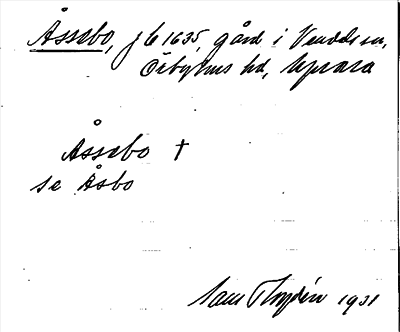 Åssebo, jb 1635, gård i Vendels sn,
Örbyhus hd, Uppsala
Åssebo †
se Åsbo
1931